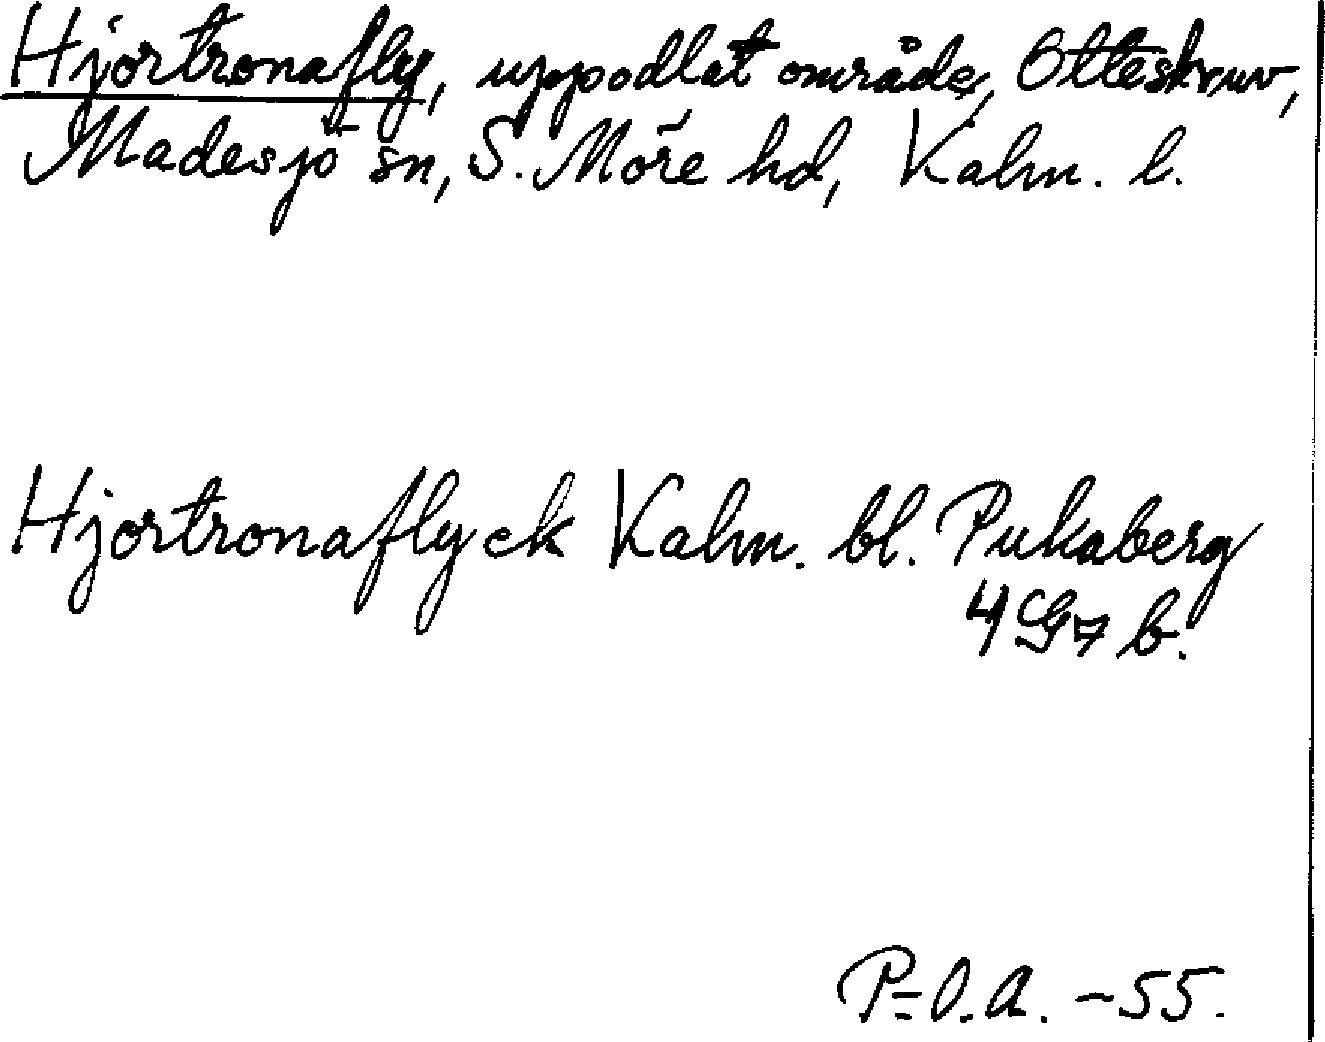 Hjortronafly, uppodlat område, Otteskruv,
Madesjö sn, S. Möre hd, Kalm. l.
Hjortronaflyck Kalm. bl. Pukaberg
4G7b.
P=O.A. -55.